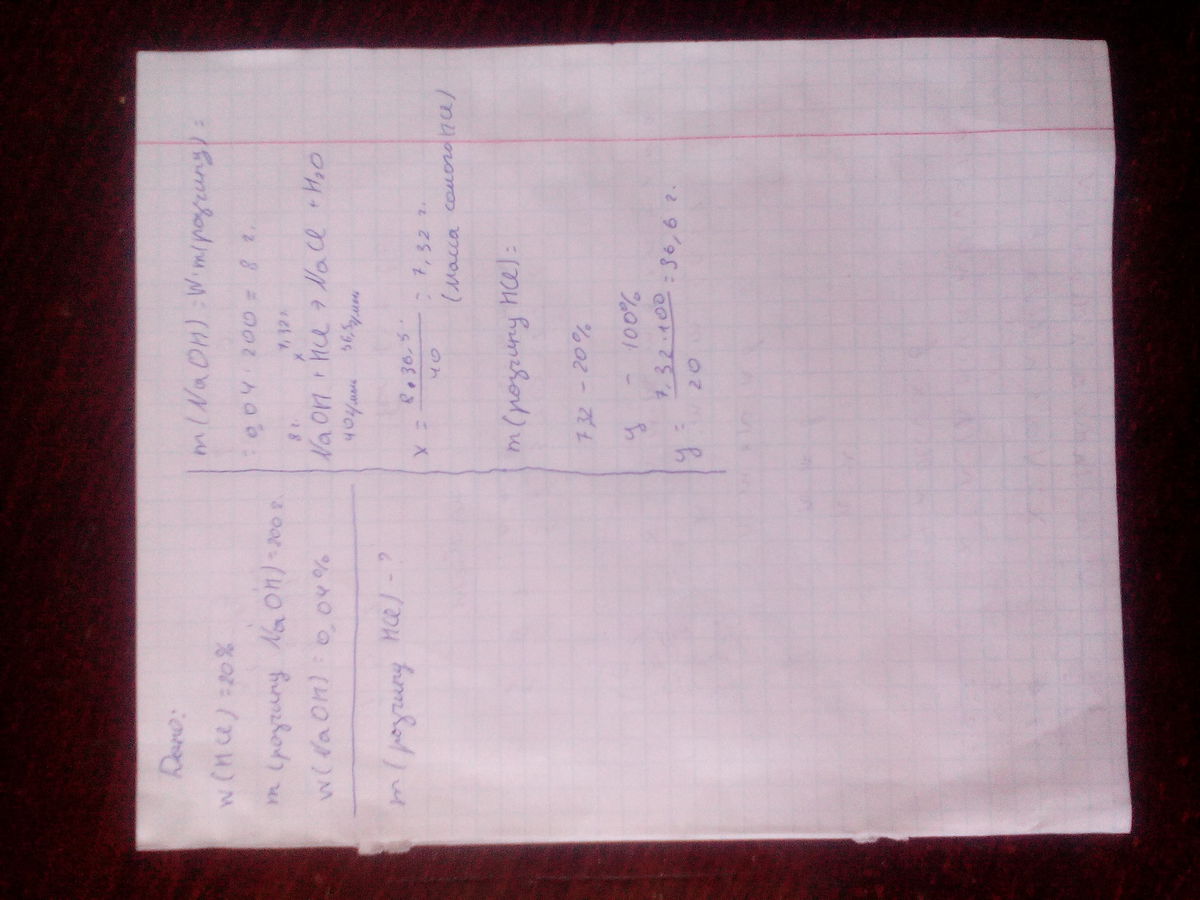 Дано:
W(HCl) = 20%
m(розчину NaOH) = 200 г.
W(NaOH) = 0,04%
m(розчину HCl) - ?
m(NaOH) = W·m(розчину) =
= 0,04 · 200 = 8 г.
8 г. x 7,32 г.
NaOH + HCl → NaCl + H₂O
40 г/моль 36,5 г/моль
x = 8·36,5 / 40 = 7,32 г.
(Масса самого HCl)
m(розчину HCl) =
7,32 - 20%
y - 100%
y = 7,32·100 / 20 = 36,6 г.